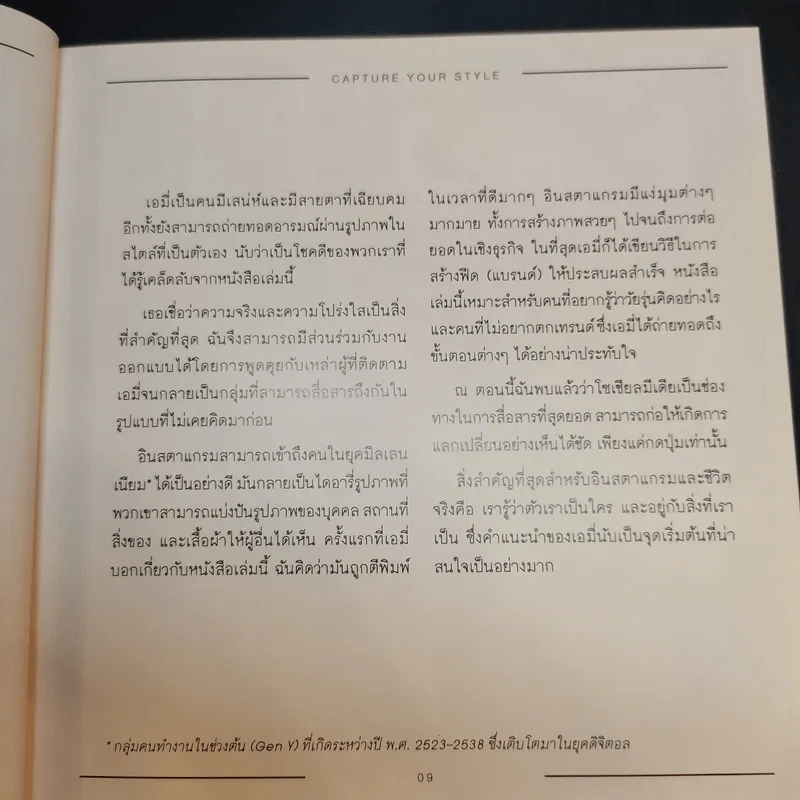 CAPTURE YOUR STYLE
เอมี่เป็นคนมีเสน่ห์และมีสายตาที่เฉียบคม
อีกทั้งยังสามารถถ่ายทอดอารมณ์ผ่านรูปภาพใน
สไตล์ที่เป็นตัวเอง นับว่าเป็นโชคดีของพวกเราที่
ได้รู้เคล็ดลับจากหนังสือเล่มนี้
เธอเชื่อว่าความจริงและความโปร่งใสเป็นสิ่ง
ที่สำคัญที่สุด ฉันจึงสามารถมีส่วนร่วมกับงาน
ออกแบบได้โดยการพูดคุยกับเหล่าผู้ที่ติดตาม
เอมี่จนกลายเป็นกลุ่มที่สามารถสื่อสารถึงกันใน
รูปแบบที่ไม่เคยคิดมาก่อน
อินสตาแกรมสามารถเข้าถึงคนในยุคมิลเลน
เนียม* ได้เป็นอย่างดี มันกลายเป็นไดอารี่รูปภาพที่
พวกเขาสามารถแบ่งปันรูปภาพของบุคคล สถานที่
สิ่งของ และเสื้อผ้าให้ผู้อื่นได้เห็น ครั้งแรกที่เอมี่
บอกเกี่ยวกับหนังสือเล่มนี้ ฉันคิดว่ามันถูกตีพิมพ์
ในเวลาที่ดีมากๆ อินสตาแกรมมีแง่มุมต่างๆ
มากมาย ทั้งการสร้างภาพสวยๆ ไปจนถึงการต่อ
ยอดในเชิงธุรกิจ ในที่สุดเอมี่ก็ได้เขียนวิธีในการ
สร้างฟีด (แบรนด์) ให้ประสบผลสำเร็จ หนังสือ
เล่มนี้เหมาะสำหรับคนที่อยากรู้ว่าวัยรุ่นคิดอย่างไร
และคนที่ไม่อยากตกเทรนด์ ซึ่งเอมี่ได้ถ่ายทอดถึง
ขั้นตอนต่างๆ ได้อย่างน่าประทับใจ
ณ ตอนนี้ฉันพบแล้วว่าโซเชียลมีเดียเป็นช่อง
ทางในการสื่อสารที่สุดยอด สามารถก่อให้เกิดการ
แลกเปลี่ยนอย่างเห็นได้ชัด เพียงแค่กดปุ่มเท่านั้น
สิ่งสำคัญที่สุดสำหรับอินสตาแกรมและชีวิต
จริงคือ เรารู้ว่าตัวเราเป็นใคร และอยู่กับสิ่งที่เรา
เป็น ซึ่งคำแนะนำของเอมี่นับเป็นจุดเริ่มต้นที่น่า
สนใจเป็นอย่างมาก
* กลุ่มคนทำงานในช่วงต้น (Gen Y) ที่เกิดระหว่างปี พ.ศ. 2523-2538 ซึ่งเติบโตมาในยุคดิจิตอล
09